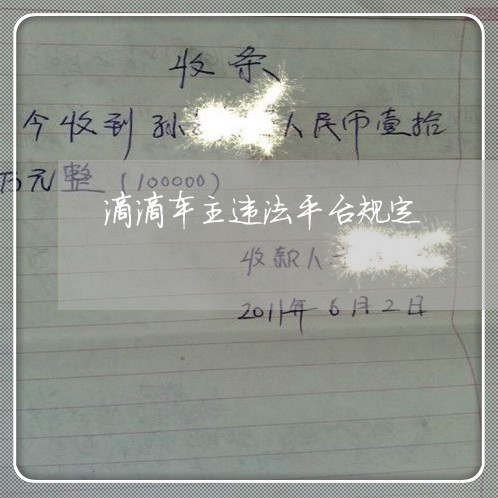 收条
今收到孙 人民币壹拾
万元整(100000)
滴滴车主违法平台规定
收款人
2011年6月2日